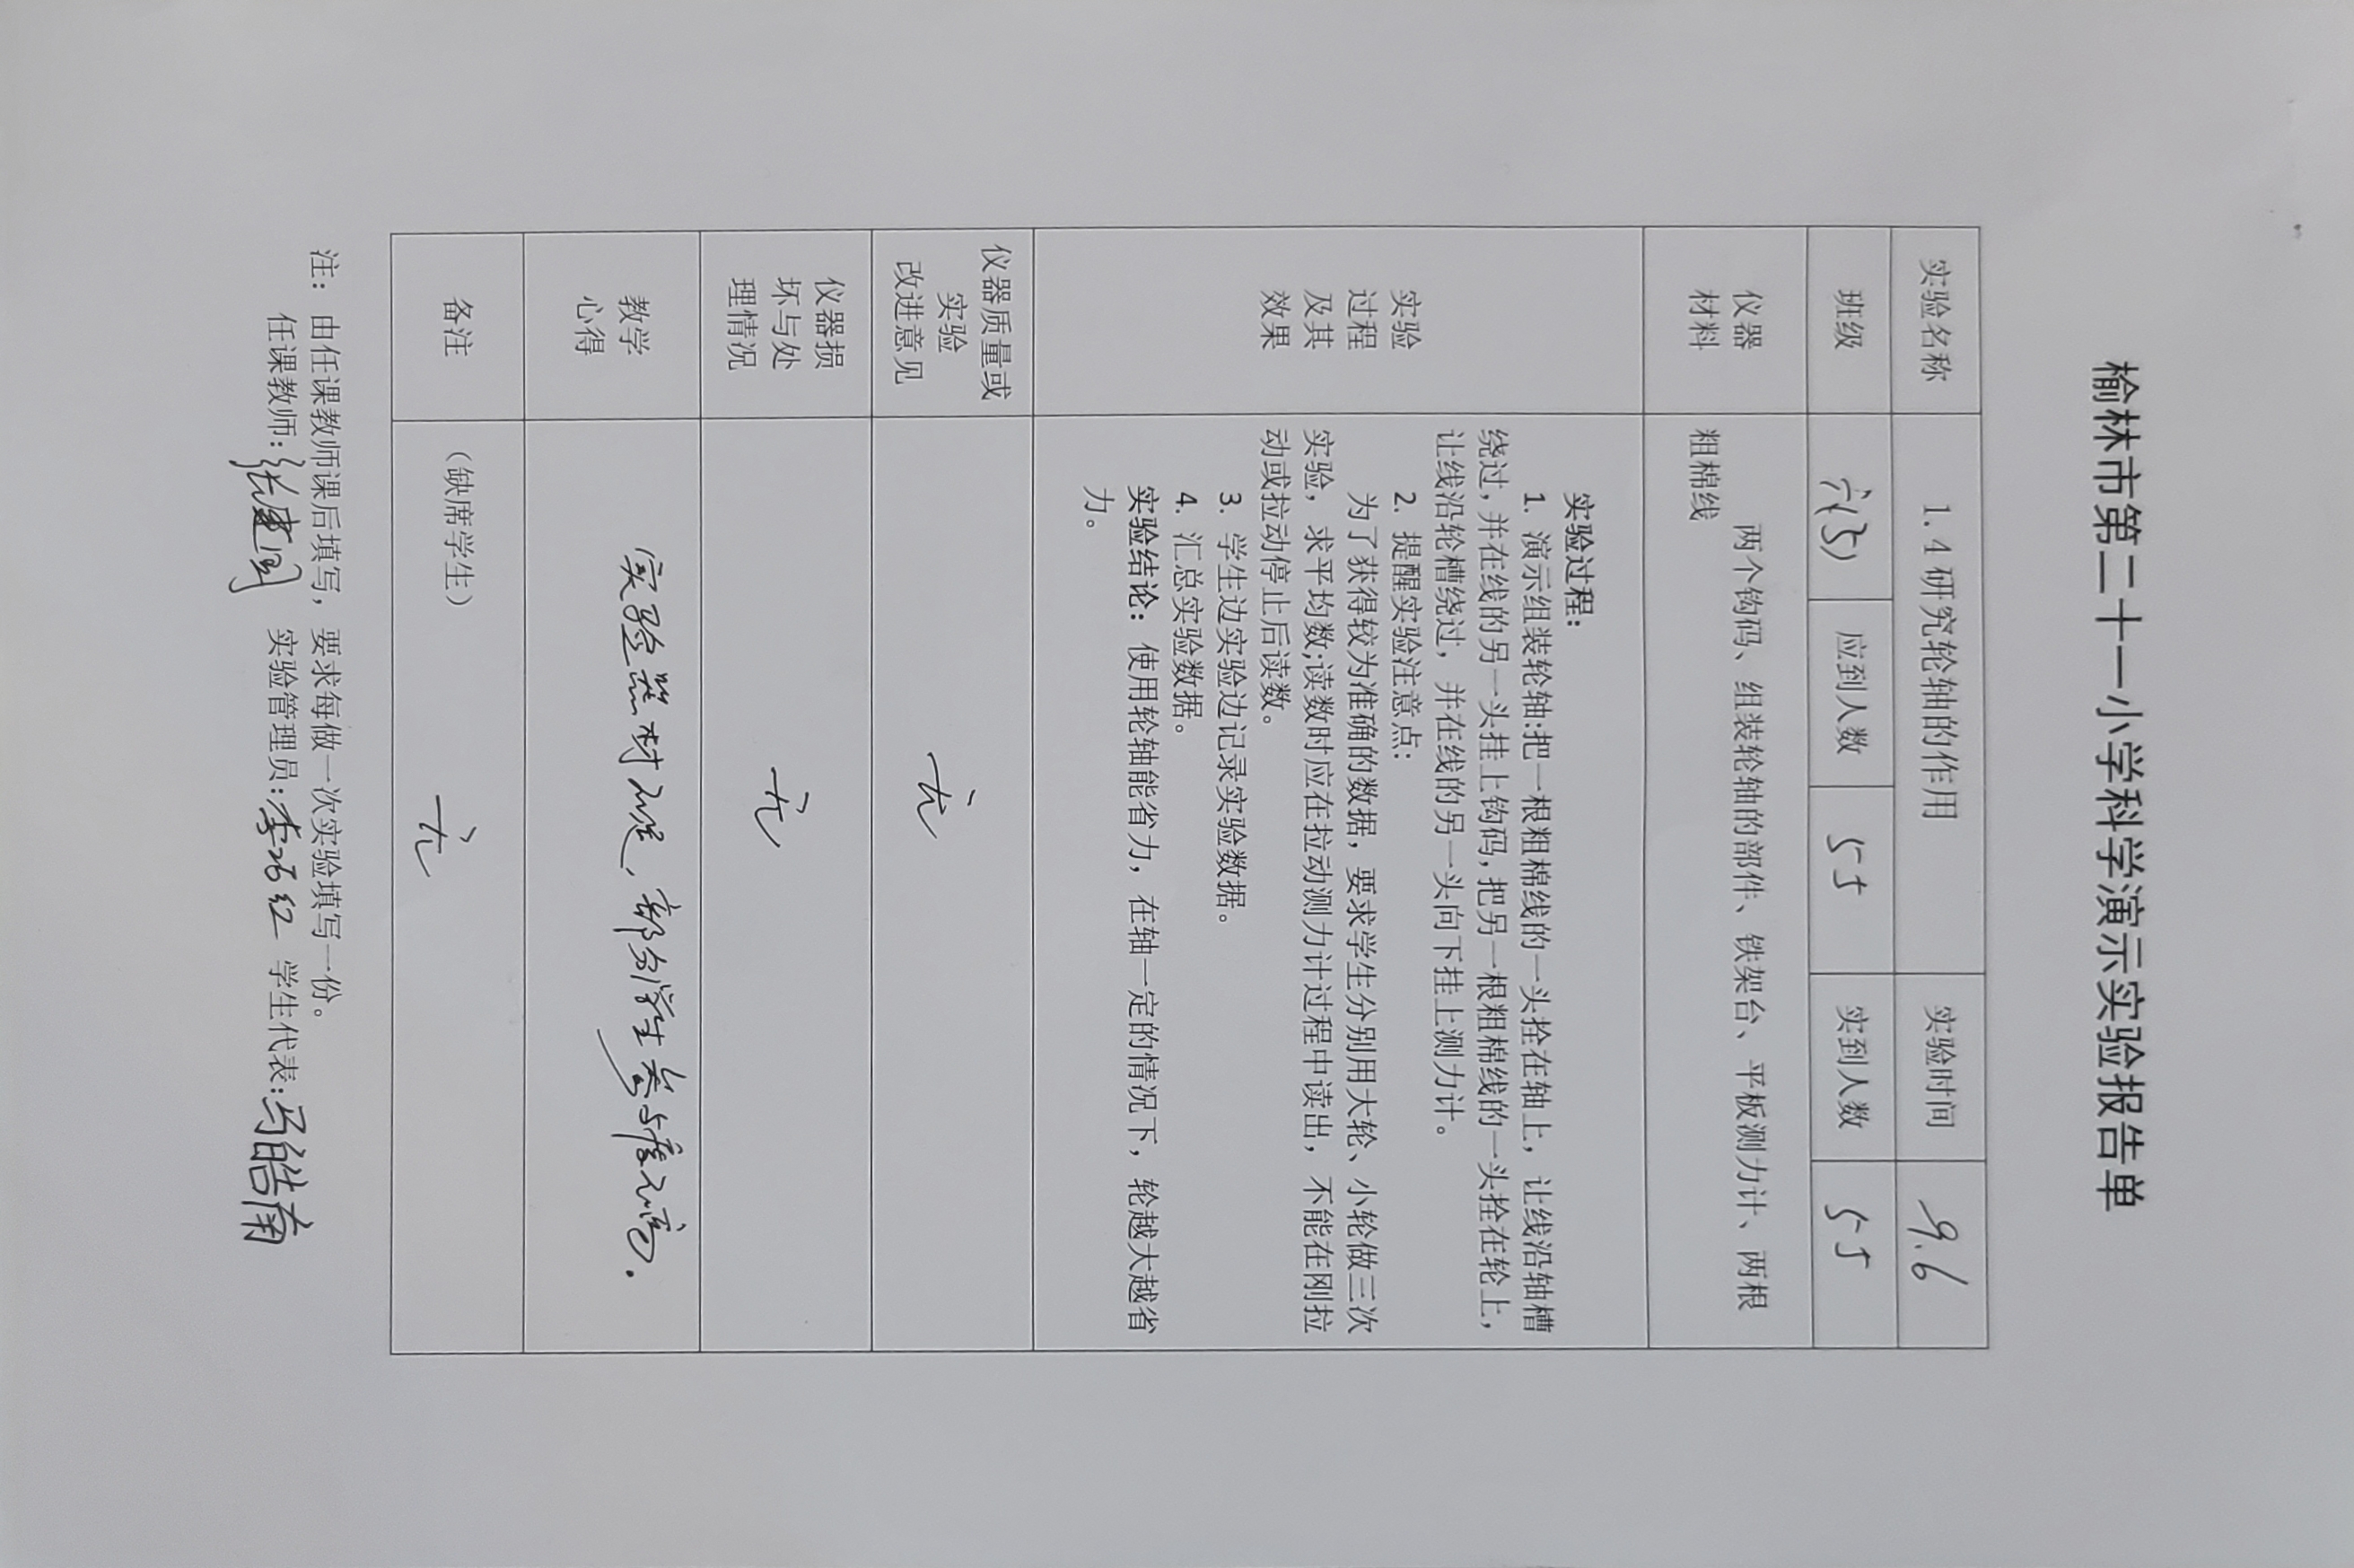 榆林市第二十一小学科学演示实验报告单
实验名称 1.4 研究轮轴的作用 实验时间 9.6
班级 六(3) 应到人数 55 实到人数 55
仪器
材料
两个钩码、组装轮轴的部件、铁架台、平板测力计、两根
粗棉线
实验
过程
及其
效果
实验过程：
1. 演示组装轮轴:把一根粗棉线的一头拴在轴上，让线沿轴槽
绕过,并在线的另一头挂上钩码,把另一根粗棉线的一头拴在轮上,
让线沿轮槽绕过，并在线的另一头向下挂上测力计。
2. 提醒实验注意点：
为了获得较为准确的数据，要求学生分别用大轮、小轮做三次
实验，求平均数;读数时应在拉动测力计过程中读出，不能在刚拉
动或拉动停止后读数。
3. 学生边实验边记录实验数据。
4. 汇总实验数据。
实验结论：使用轮轴能省力，在轴一定的情况下，轮越大越省
力。
仪器质量或
实验
改进意见
无
仪器损
坏与处
理情况
无
教学
心得
实验器材不足，部分学生参与度不高.
备注
（缺席学生）
无
注：由任课教师课后填写，要求每做一次实验填写一份。
任课教师: 张建国 实验管理员: 李 红 学生代表: 马皓南